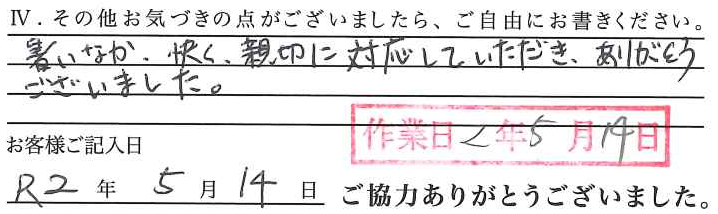 Ⅳ．その他お気づきの点がございましたら、ご自由にお書きください。
暑いなか、快く、親切に対応していただき、ありがとう
ございました。
作業日2年5月14日
お客様ご記入日
R2年5月14日 ご協力ありがとうございました。